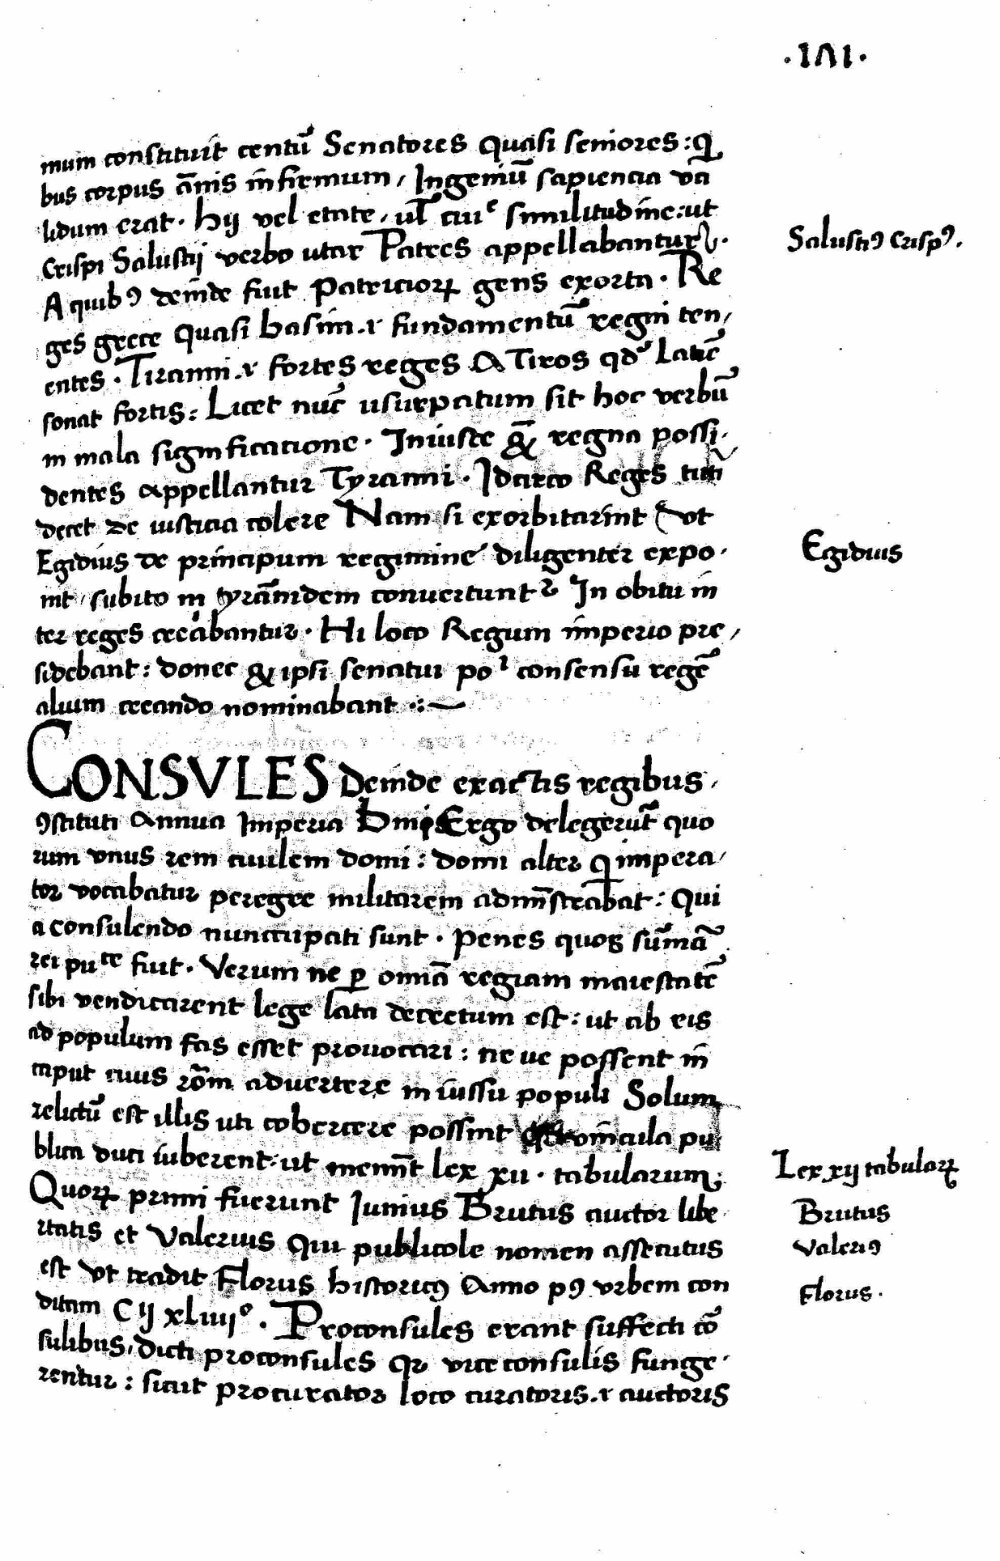 ·IVI·
mum constituit centū Senatores Quasi seniores: q̄
bus corpus ānis īnfirmum, Ingeniū sapiencia va
lidum erat· hij vel etate, ul̄ cuiᵉ similitudīe: ut
Crispi Salustij verbo utar Patres appellabantur·
A quibꝰ deīnde fuit Patriciorꝝ gens exorta· Re
ges grece Quasi basim ⁊ fundamentū regni ten/
entes· Tiranni ⁊ fortes reges A Tiros qd̓ Latīe
sonat fortis: Licet nūc usurpatum sit hoc verbū
in mala significatione· Iniuste &̄ regna possi·
dentes appellantur Tyranni· Idcirco Reges
decet de iusticia colere Nam si exorbitarint (Vt
Egidius de principum regimine diligenter expo·
nit, subito in tyrānidem convertuntᷣ In obitu in
ter reges creabantur· Hi loco Regum īmperio pre/
sidebant: donec & ipsi senatui poˡ consensu regē
alium creando nominabant ·:~
CONSVLES Deīnde exactis regibus·
ꝯstituti Annua Imperia Ergo delegerūt quo
rum vnus rem ciuilem domi: domi alter q̄ impera/
tor vocabatur peregre militarem admīstrabat: Qui
a consulendo nuncupati sunt· Penes quos sūmā
rei puᶜᵉ fuit· Verum ne ꝑ omnā regiam maiestatē
sibi vendicarent lege lata decretum est: ut ab eis
ad populum fas esset provocari: ne ve possent in
caput ciuis rōm advertere in iussu populi Solum
relictū est illis uti cohercere possint pu
blica duci iuberent·ut memīt lex xii· tabularum;
Quorꝝ primi fuerunt Junius Brutus auctor libe·
rtatis et Valerius Qui publicole nomen assecutus
est Vt tradit Florus historicꝰ Anno pꝰ vrbem con
ditam CIJ xliiijº· Proconsules erant suffecti cō
sulibus, dicti proconsules qr vice consulis funge·
rentur: sicut procurator loco curatoris ⁊ auctoris
Salustiꝰ Crispꝰ.
Egidius
Lex xij tabularꝝ
Brutus
Valeriꝰ
Florus·